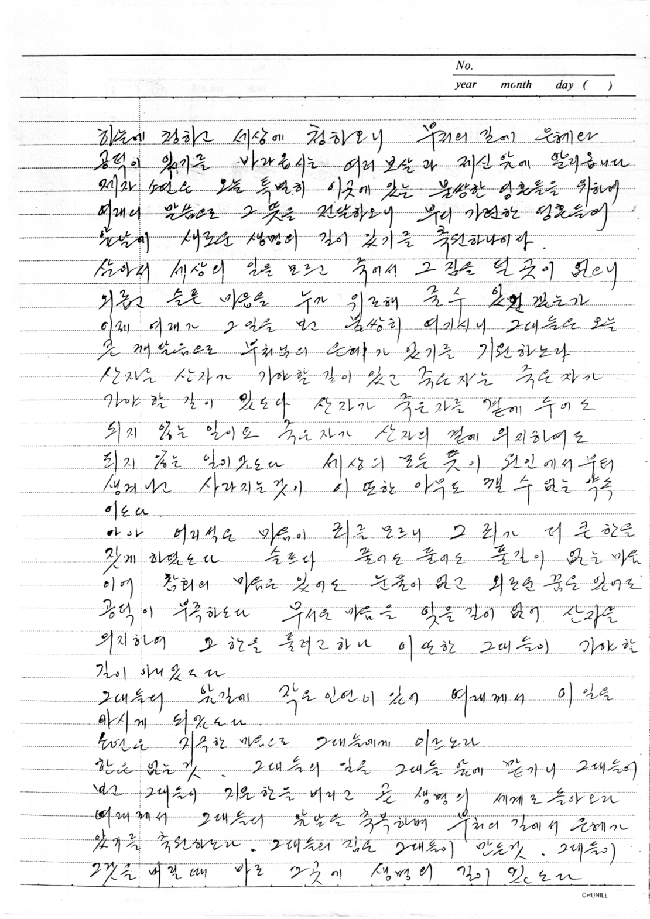 No.
year month day ( )
하늘에 정하고 세상에 청하오니 부처의 길에 은혜와
공덕이 있기를 바라옵시는 여러 보살과 제신 앞에 알리옵니다
제자 소연은 오늘 특별히 이곳에 있는 불쌍한 영혼들을 위하여
여래의 말씀으로 그 뜻을 전달하오니 부디 가련한 영혼들이
앞날에 새로운 생명의 길이 있기를 축원하나이다.
살아서 세상의 일을 모르고 죽어서 그 짐을 덜 곳이 없으니
외롭고 슬픈 마음을 누가 위로해 줄 수 있었겠는가
이제 여래가 그 일을 보고 불쌍히 여기시니 그대들은 오늘
곧 깨달음으로 부처님의 은혜가 있기를 기원하노라
산자는 산자가 가야할 길이 있고 죽은자는 죽은 자가
가야 할 길이 있도다 산자가 죽은자를 곁에 두어도
되지 않는 일이요 죽은자가 산자의 곁에 의지하여도
되지 않는 일이로다 세상의 모든 뜻이 원인에서부터
생겨나고 사라지는 것이 이 또한 아무도 깰 수 없는 약속
이로다
아아 어리석은 마음이 죄를 모르니 그 죄가 더 큰 한을
짓게 하였도다 슬프다 풀어도 풀어도 풀길이 없는 마음
이여 참회의 마음은 있어도 눈물이 없고 외로운 꿈은 있어도
공덕이 부족하도다 무서운 마음을 잊을 길이 없어 산자를
의지하여 그 한을 풀려고 하나 이 또한 그대들이 가야 할
길이 아니었도다
그대들의 앞길에 작은 인연이 있어 여래께서 이 일을
아시게 되었도다
소연은 지극한 마음으로 그대들에게 이르노라
한은 없는 것. 그대들의 일을 그대들 앞에 맡기니 그대들이
보고 그대들이 지은 한을 버리고 곧 생명의 세계로 돌아오라
여래께서 그대들의 앞날을 축복하며 부처의 길에서 은혜가
있기를 축원하노라. 그대들의 짐은 그대들이 만든것. 그대들이
그것을 버릴 때 바로 그곳에 생명의 길이 있도다
CHUNILL